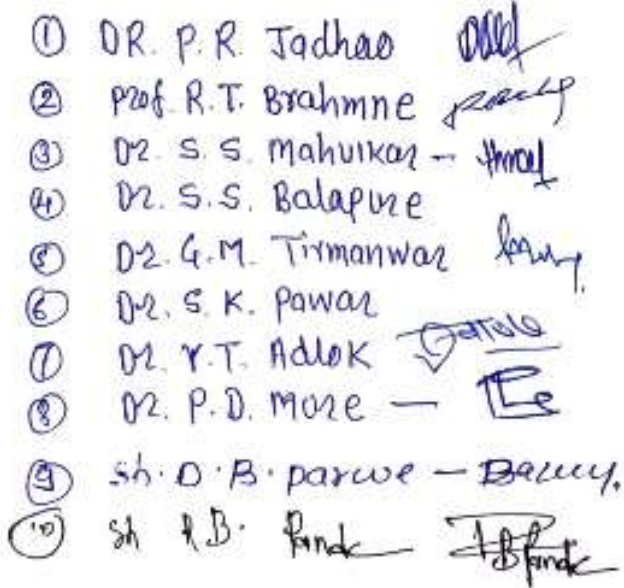 ① DR. P. R. Jadhao
② Prof. R.T. Brahmne
③ Dr. S. S. Mahurkar -
④ Dr. S.S. Balapure
⑤ Dr. G.M. Tirmanwar
⑥ Dr. S. K. Pawar
⑦ Dr. Y.T. Adlok
⑧ Dr. P.D. More —
⑨ Sh. D. B. parwe —
⑩ Sh R.B.